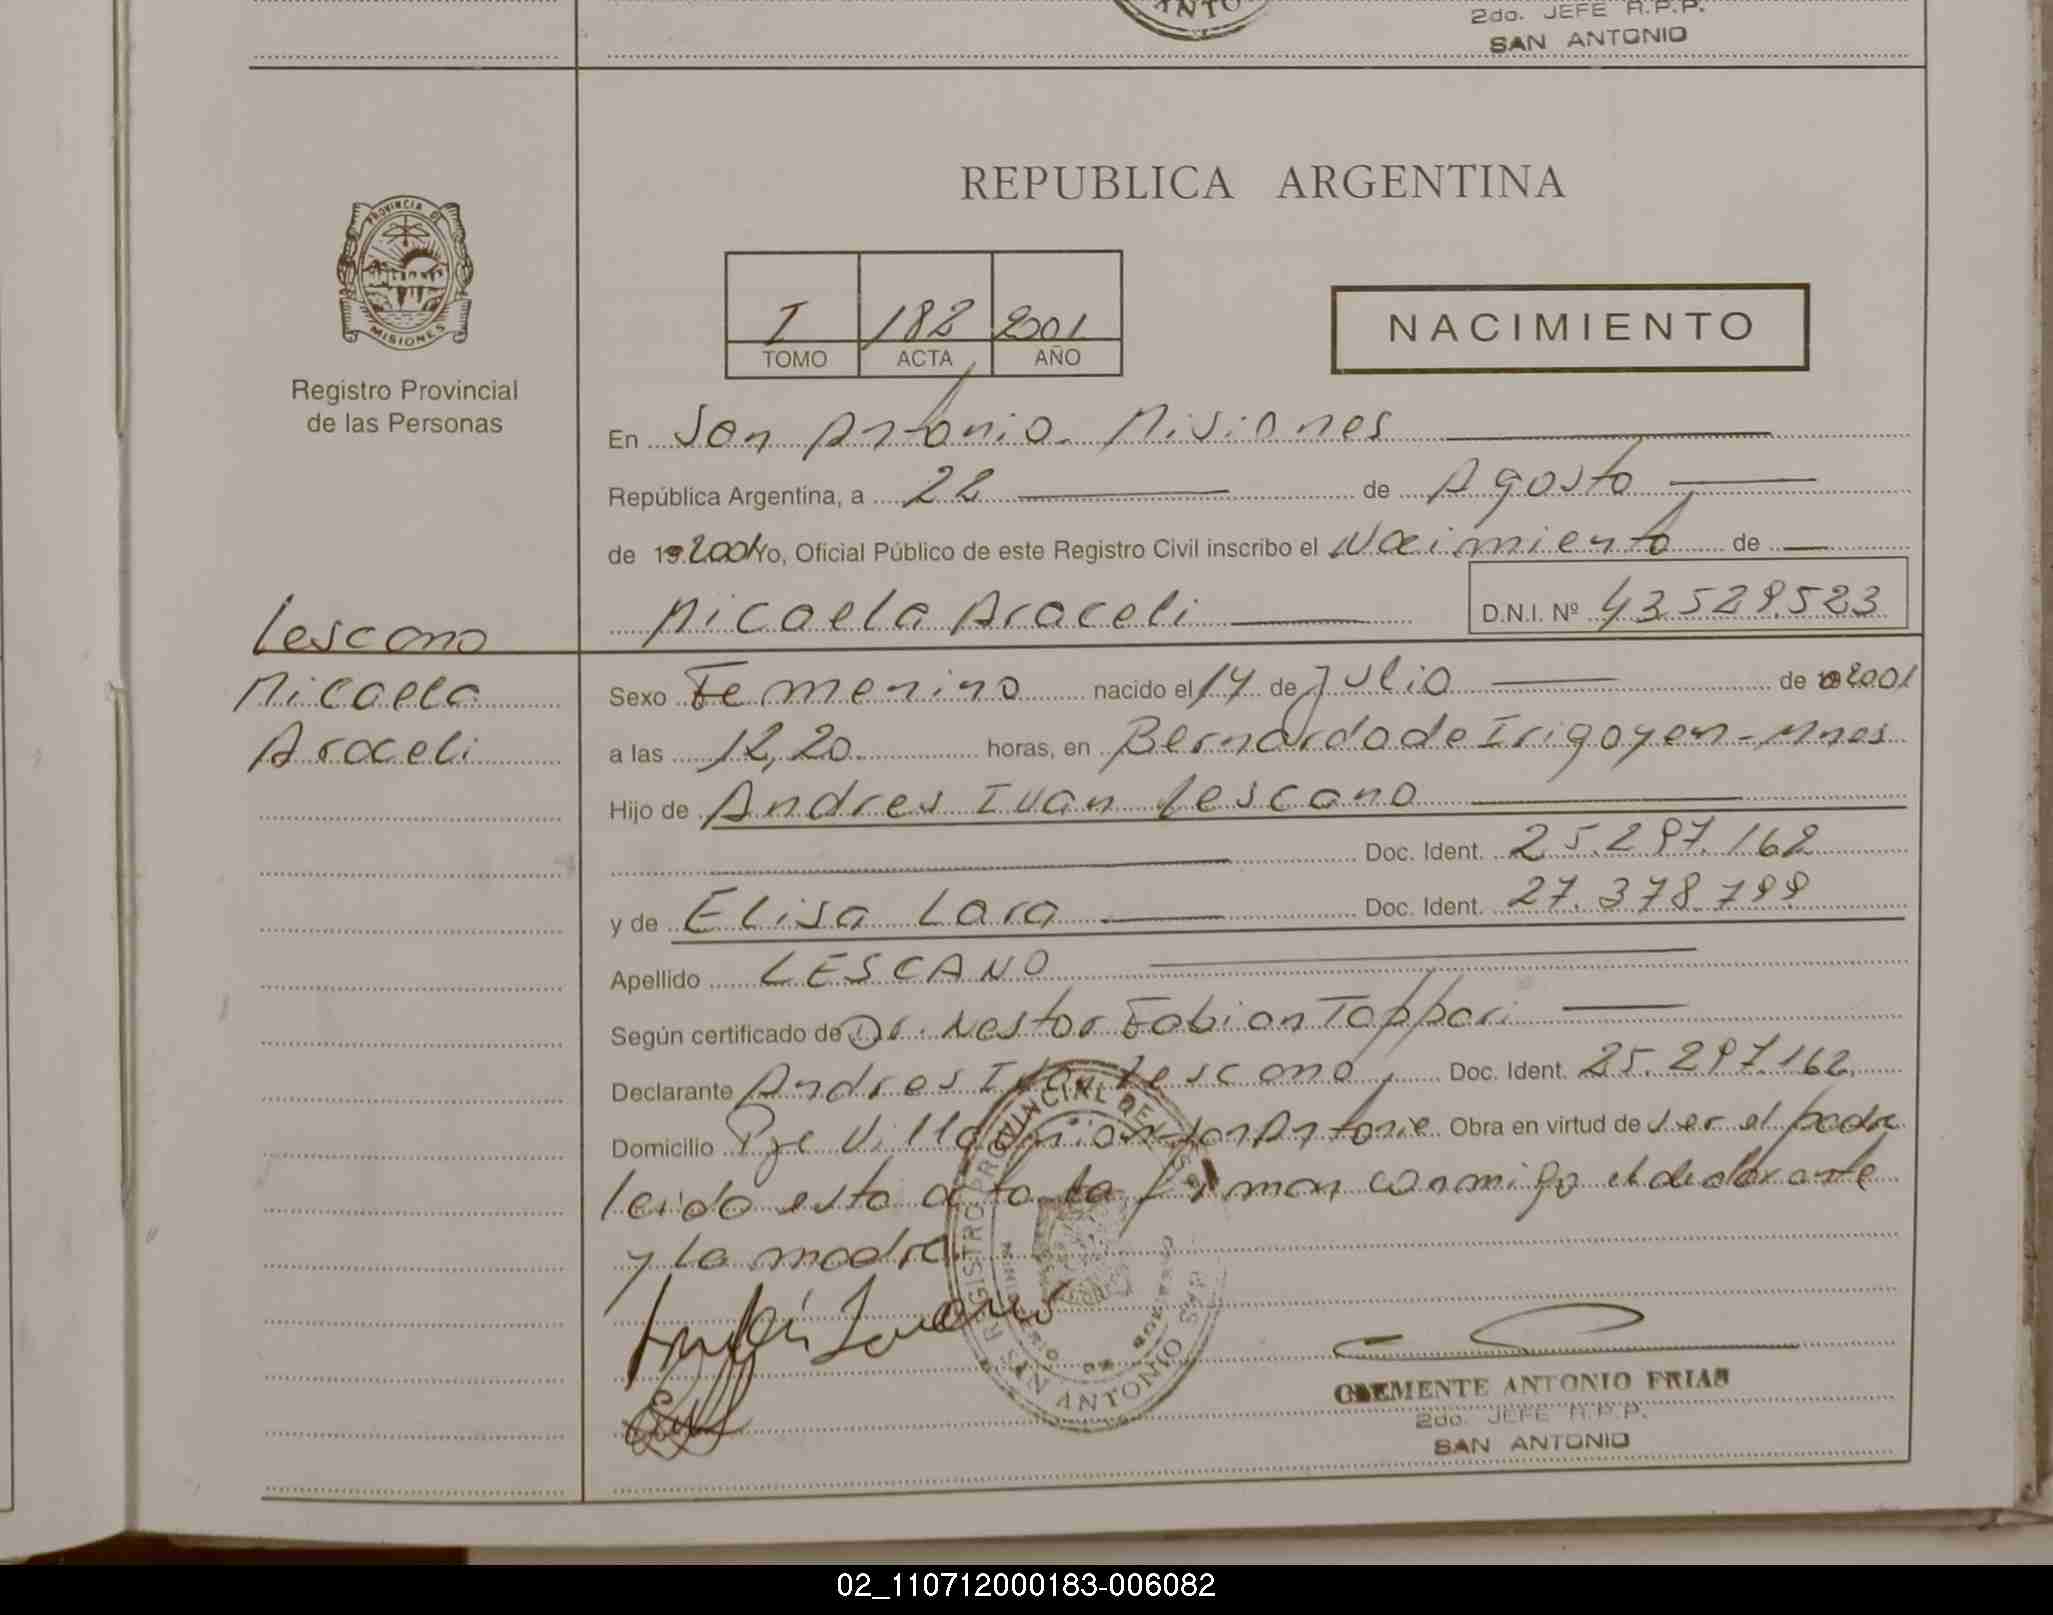 ANTO
2do. JEFE R.P.P.
SAN ANTONIO
PROVINCIA DE
MISIONES
Registro Provincial
de las Personas
REPUBLICA ARGENTINA
I 182 2001
TOMO ACTA AÑO
NACIMIENTO
En San Antonio. Misiones
República Argentina, a 22 de Agosto
de 19 2001 Yo, Oficial Público de este Registro Civil inscribo el Nacimiento de
Micaela Araceli D.N.I. Nº 43.529.523
Lescano
Micaela
Araceli
Sexo Femenino nacido el 14 de Julio de 2001
a las 12,20 horas, en Bernardo de Irigoyen - Mnes
Hijo de Andres Ivan Lescano
Doc. Ident. 25.297.162
y de Elisa Lara Doc. Ident. 27.378.799
Apellido LESCANO
Según certificado de Dr. Nestor Fabian Tappari
Declarante Andres Ivan Lescano, Doc. Ident. 25.297.162
Domicilio Pje Villa San Antonio Obra en virtud de ser el padre
leido esta acta la firman conmigo el declarante
y la madre
REGISTRO PROVINCIAL DE LAS
SAN ANTONIO
CLEMENTE ANTONIO FRIAS
2do. JEFE R.P.P.
SAN ANTONIO
02_110712000183-006082